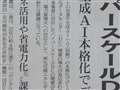 バースケールD
成AI本格化でご
ネ活用や省電力化、課